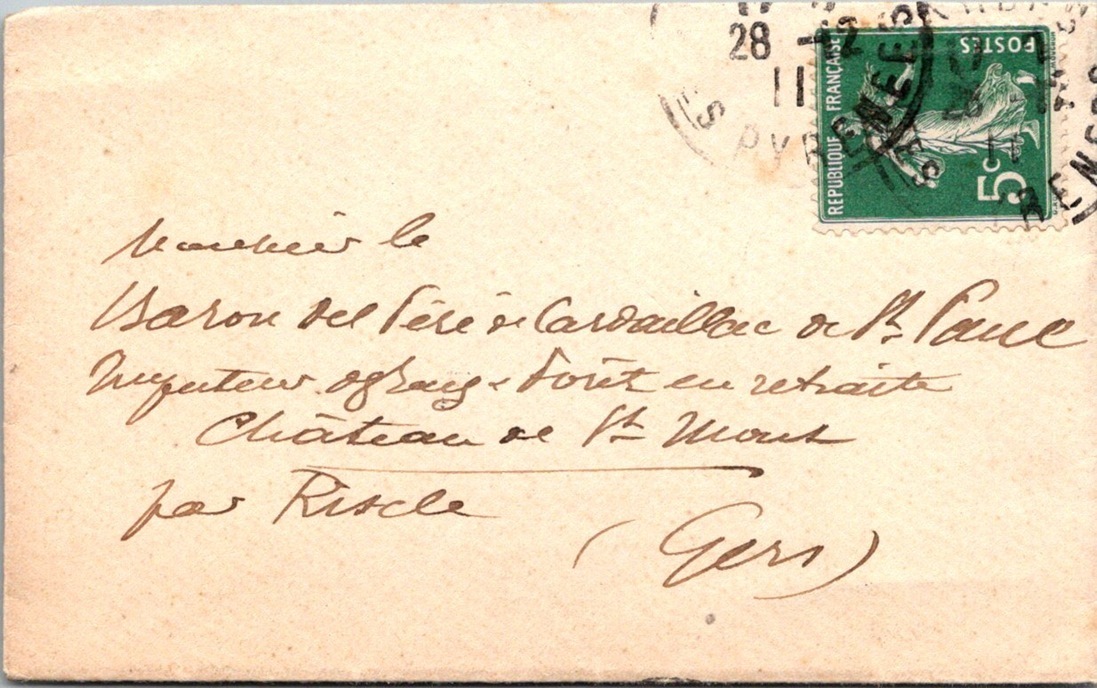 28 - 12
11
S PYRENEES
RENEES
REPUBLIQUE FRANÇAISE
POSTES
5c
Monsieur le
Baron del Péré de Cardaillac de St. Paul
Inspecteur des forêts en retraite
Château de St Mont
par Riscle
(Gers)